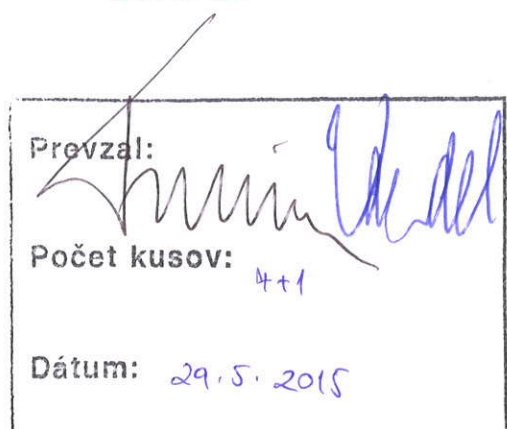 Prevzal:
Počet kusov: 4+1
Dátum: 29.5.2015